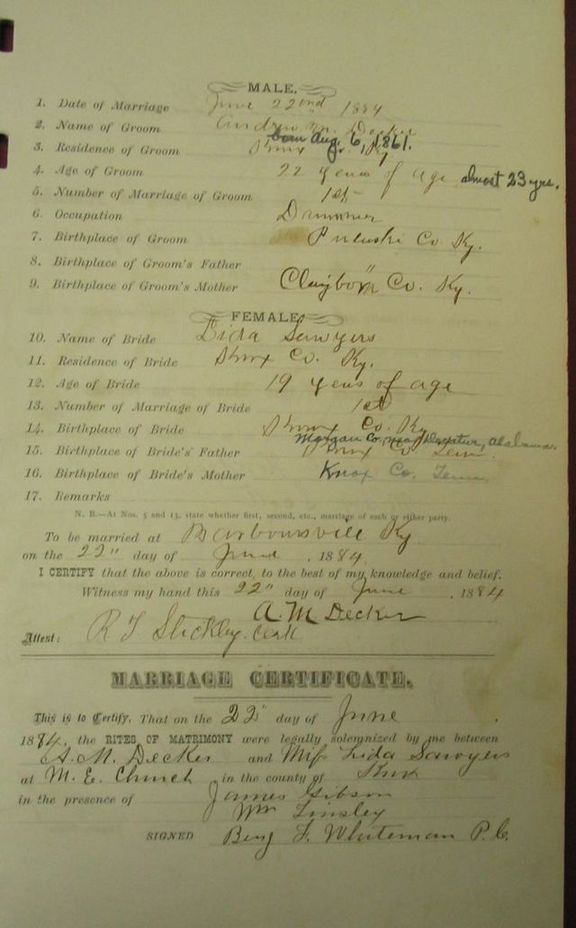 MALE.
1. Date of Marriage June 22nd 1884
2. Name of Groom Andrew M. Decker
born Aug. 6, 1861.
3. Residence of Groom Knox Ky
4. Age of Groom 22 years of age almost 23 yrs.
5. Number of Marriage of Groom 1st
6. Occupation Drummer
7. Birthplace of Groom Puluski Co. Ky.
8. Birthplace of Groom's Father
9. Birthplace of Groom's Mother Clayborn Co. Ky.
FEMALE.
10. Name of Bride Lida Sawyers
11. Residence of Bride Knox Co. Ky.
12. Age of Bride 19 years of age
13. Number of Marriage of Bride 1st
14. Birthplace of Bride Knox Co. Ky
Morgan Co. near Decatur, Alabama.
15. Birthplace of Bride's Father Knox Co Tenn.
16. Birthplace of Bride's Mother Knox Co. Tenn.
17. Remarks
N. B.—At Nos. 5 and 13, state whether first, second, etc., marriage of each or either party.
To be married at Barboursville Ky
on the 22" day of June, 1884
I CERTIFY that the above is correct, to the best of my knowledge and belief.
Witness my hand this 22" day of June, 1884
A. M Decker
Attest: R T Stickley. Clerk
MARRIAGE CERTIFICATE.
This is to Certify, That on the 22" day of June
1884, the RITES OF MATRIMONY were legally solemnized by me between
A. M. Decker and Miss Lida Sawyers
at M. E. Church in the county of Knox
in the presence of James Gibson
Wm Tinsley
SIGNED Benj F. Whiteman P. C.